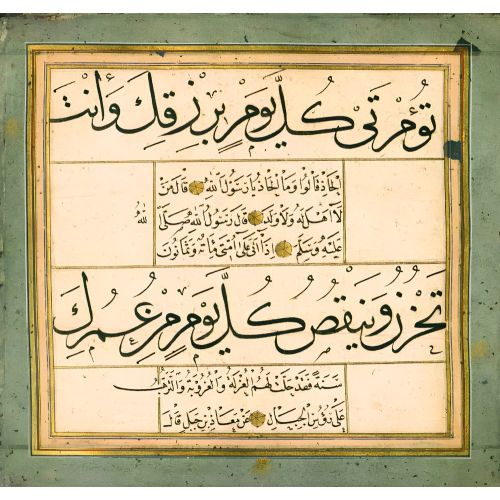 تُؤْتَىٰ كُلَّ يَوْمٍ بِرِزْقِكَ وَأَنْتَ
الحَاذ قَالُوا وَمَا الحَاذُ يَا رَسُولَ اللهِ قَالَ مَنْ
لَا اَهْلَ لَهُ وَلَا وَلَد قَالَ رَسُولُ اللهِ صَلَّى اللهُ
عَلَيْهِ وَسَلَّمَ اِذَا اَتَى عَلَى اُمَّتِى مِائَة وَثَمَانُونَ
تَحْزَنُ وَيَنْقُصُ كُلَّ يَوْمٍ مِنْ عُمُرِكَ
سَنَةً فَقَدْ حَلَّتْ لَهُمُ العُزْلَةُ وَالعُزُوبَةُ وَالتَّرَهُّبُ
عَلَى رُؤُسِ الجِبَال عَنْ مُعَاذِ بْنِ جَبَلٍ قَالَ